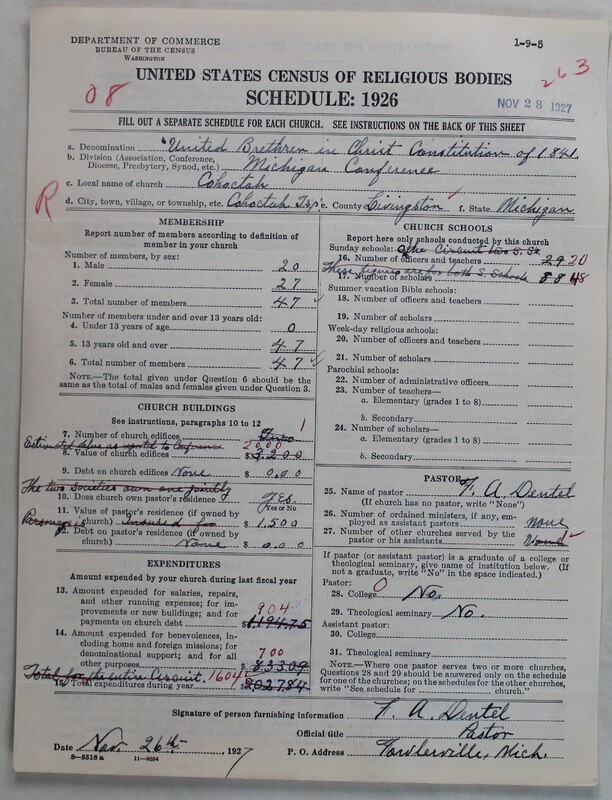 DEPARTMENT OF COMMERCE
BUREAU OF THE CENSUS
WASHINGTON
1-9-5
UNITED STATES CENSUS OF RELIGIOUS BODIES
263
28
SCHEDULE: 1926
NOV 28 1927
FILL OUT A SEPARATE SCHEDULE FOR EACH CHURCH. SEE INSTRUCTIONS ON THE BACK OF THIS SHEET
a. Denomination United Brethren in Christ Constitution of 1841
b. Division (Association, Conference, Diocese, Presbytery, Synod, etc.) Michigan Conference
c. Local name of church Cohoctah
R
d. City, town, village, or township, etc. Cohoctah Twp. e. County Livingston f. State Michigan
MEMBERSHIP
Report number of members according to definition of
member in your church
Number of members, by sex:
1. Male 20
2. Female 27
3. Total number of members 47
Number of members under and over 13 years old:
4. Under 13 years of age 0
5. 13 years old and over 47
6. Total number of members 47
NOTE.—The total given under Question 6 should be the
same as the total of males and females given under Question 3.
CHURCH BUILDINGS
See instructions, paragraphs 10 to 12
1
7. Number of church edifices Two
Estimated value as reported to Conference 2000
8. Value of church edifices $3,200
9. Debt on church edifices None $0.00
The two societies own one jointly
10. Does church own pastor's residence? Yes
Yes or No
11. Value of pastor's residence (if owned by
Parsonage is church) Insured for $1,500
12. Debt on pastor's residence (if owned by
church) None $0.00
EXPENDITURES
Amount expended by your church during last fiscal year
13. Amount expended for salaries, repairs,
and other running expenses; for improvements or new buildings; and for
904
payments on church debt $1194.75
14. Amount expended for benevolences, including home and foreign missions; for
denominational support; and for all
700
other purposes $833.09
Total for the entire Circuit. 1604
15. Total expenditures during year $2027.84
CHURCH SCHOOLS
Report here only schools conducted by this church
Sunday schools: On the Circuit two S. Sc.
16. Number of officers and teachers 29 20
These figures are for both S. Schools
17. Number of scholars 88 48
Summer vacation Bible schools:
18. Number of officers and teachers
19. Number of scholars
Week-day religious schools:
20. Number of officers and teachers
21. Number of scholars
Parochial schools:
22. Number of administrative officers
23. Number of teachers—
a. Elementary (grades 1 to 8)
b. Secondary
24. Number of scholars—
a. Elementary (grades 1 to 8)
b. Secondary
PASTOR
25. Name of pastor F. A. Dentel
(If church has no pastor, write "None")
26. Number of ordained ministers, if any, employed as assistant pastors none
27. Number of other churches served by the
pastor or his assistants None 1
If pastor (or assistant pastor) is a graduate of a college or
theological seminary, give name of institution below. (If
not a graduate, write "No" in the space indicated.)
Pastor:
0
28. College No.
29. Theological seminary No.
Assistant pastor:
30. College
31. Theological seminary
NOTE.—Where one pastor serves two or more churches,
Questions 28 and 29 should be answered only on the schedule
for one of the churches; on the schedules for the other churches,
write "See schedule for church."
Signature of person furnishing information F. A. Dentel
Official title Pastor
Date Nov. 26th, 1927
P. O. Address Fowlerville, Mich.
8-5518 a 11-9054